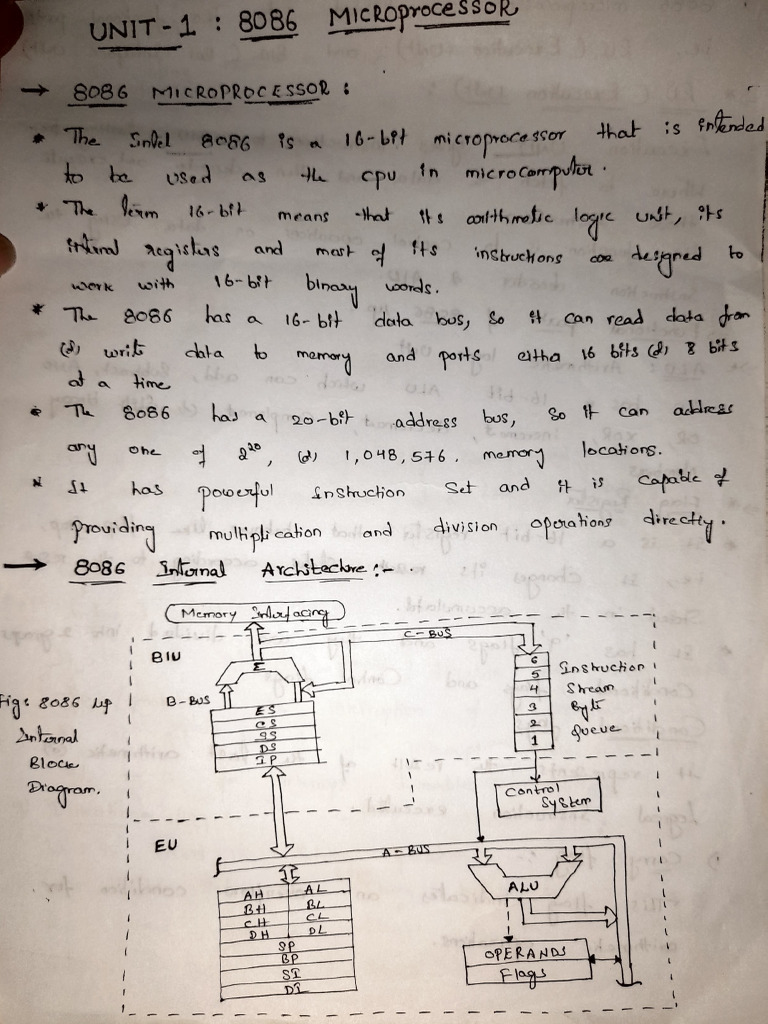 UNIT-1 : 8086 MICROPROCESSOR
→ 8086 MICROPROCESSOR :
* The Intel 8086 is a 16-bit microprocessor that is intended
to be used as the cpu in microcomputer.
* The term 16-bit means that its arithmetic logic unit, its
internal registers and most of its instructions are designed to
work with 16-bit binary words.
* The 8086 has a 16-bit data bus, so it can read data from
(or) write data to memory and ports either 16 bits (or) 8 bits
at a time
* The 8086 has a 20-bit address bus, so it can address
any one of 2^20, (or) 1,048,576. memory locations.
* It has powerful Instruction Set and it is capable of
providing multiplication and division operations directly.
→ 8086 Internal Architecture :-
Memory Interfacing
C-BUS
BIU
Σ
B-BUS
ES
CS
SS
DS
IP
6
5
4
3
2
1
Instruction
Stream
Byte
Queue
Fig: 8086 up
Internal
Block
Diagram.
Control
System
EU
A-BUS
AH AL
BH BL
CH CL
DH DL
SP
BP
SI
DI
ALU
OPERANDS
Flags